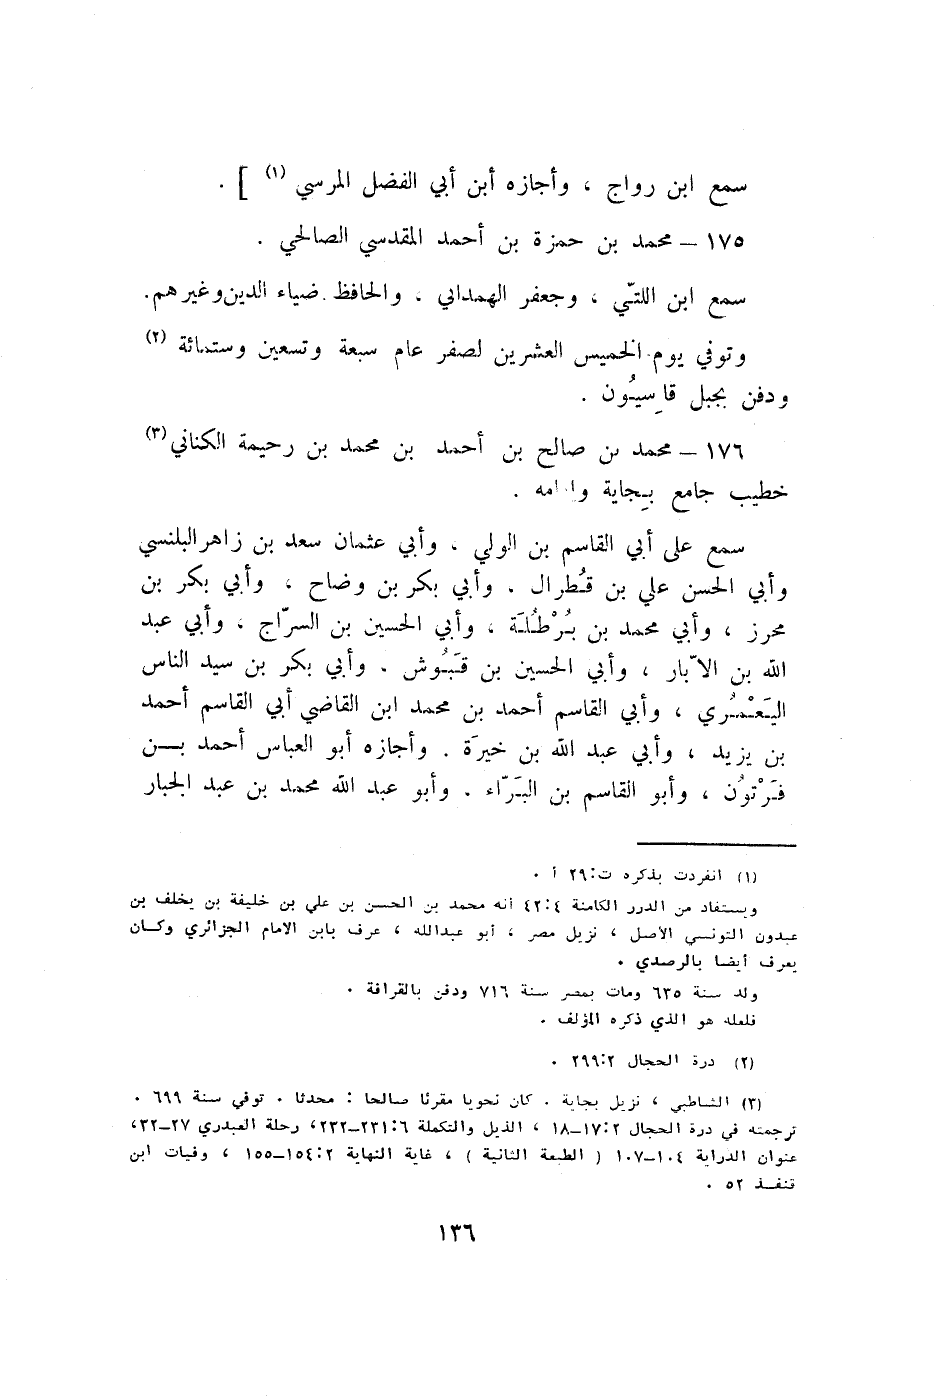 سمع ابن رواج ، وأجازه أبن أبي الفضل المرسي (١) ] .
١٧٥ – محمد بن حمزة بن أحمد المقدسي الصالحي .
سمع ابن اللتّي ، وجعفر الهمداني ، والحافظ ضياء الدين وغيرهم.
وتوفي يوم الخميس العشرين لصفر عام سبعة وتسعين وستمائة (٢)
ودفن بجبل قاسيُون .
١٧٦ – محمد بن صالح بن أحمد بن محمد بن رحيمة الكناني (٣)
خطيب جامع بِجاية وإمامه .
سمع على أبي القاسم بن الولي ، وأبي عثمان سعد بن زاهر البلنسي
وأبي الحسن علي بن قُطرال . وأبي بكر بن وضاح ، وأبي بكر بن
محرز ، وأبي محمد بن بُرْطُلَة ، وأبي الحسين بن السرّاج ، وأبي عبد
الله بن الأبّار ، وأبي الحسين بن قَبُوش . وأبي بكر بن سيد الناس
اليَعْمُري ، وأبي القاسم أحمد بن محمد ابن القاضي أبي القاسم أحمد
بن يزيد ، وأبي عبد الله بن خيرَة . وأجازه أبو العباس أحمد بــن
فَرْتُون ، وأبو القاسم بن البَرّاء . وأبو عبد الله محمد بن عبد الجبار
(١) انفردت بذكره ت:٢٩ أ .
ويستفاد من الدرر الكامنة ٤:٤٢ أنه محمد بن الحسن بن علي بن خليفة بن يخلف بن
عبدون التونسي الأصل ، نزيل مصر ، أبو عبدالله ، عرف بابن الامام الجزائري وكــان
يعرف أيضا بالرصدي .
ولد سنة ٦٣٥ ومات بمصر سنة ٧١٦ ودفن بالقرافة .
فلعله هو الذي ذكره المؤلف .
(٢) درة الحجال ٢:٢٩٩ .
(٣) الشاطبي ، نزيل بجاية . كان نحويا مقرئا صالحا : محدثا . توفي سنة ٦٩٩ .
ترجمته في درة الحجال ٢:١٧–١٨ ، الذيل والتكملة ٦:٢٣١–٢٣٢، رحلة العبدري ٢٧–٣٢،
عنوان الدراية ١٠٤–١٠٧ ( الطبعة الثانية ) ، غاية النهاية ٢:١٥٤–١٥٥ ، وفيات ابن
قنفــذ ٥٢ .
١٣٦